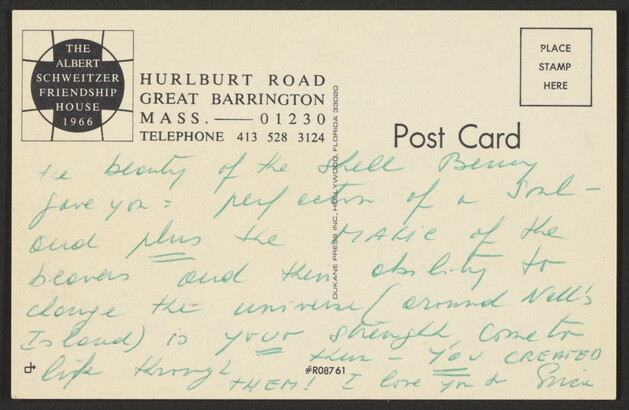 THE
ALBERT
SCHWEITZER
FRIENDSHIP
HOUSE
1966
HURLBURT ROAD
GREAT BARRINGTON
MASS. — 01230
TELEPHONE 413 528 3124
PLACE
STAMP
HERE
Post Card
DUKANE PRESS INC., HOLLYWOOD, FLORIDA 33020
beauty of the shell Benny
gave you = perfection of a Soul –
and plus the MAGIC of the
beavers and their ability to
change the universe (around Nell's
Island) is your strength come to
them – YOU CREATED
life through
THEM! I love you &
#R08761